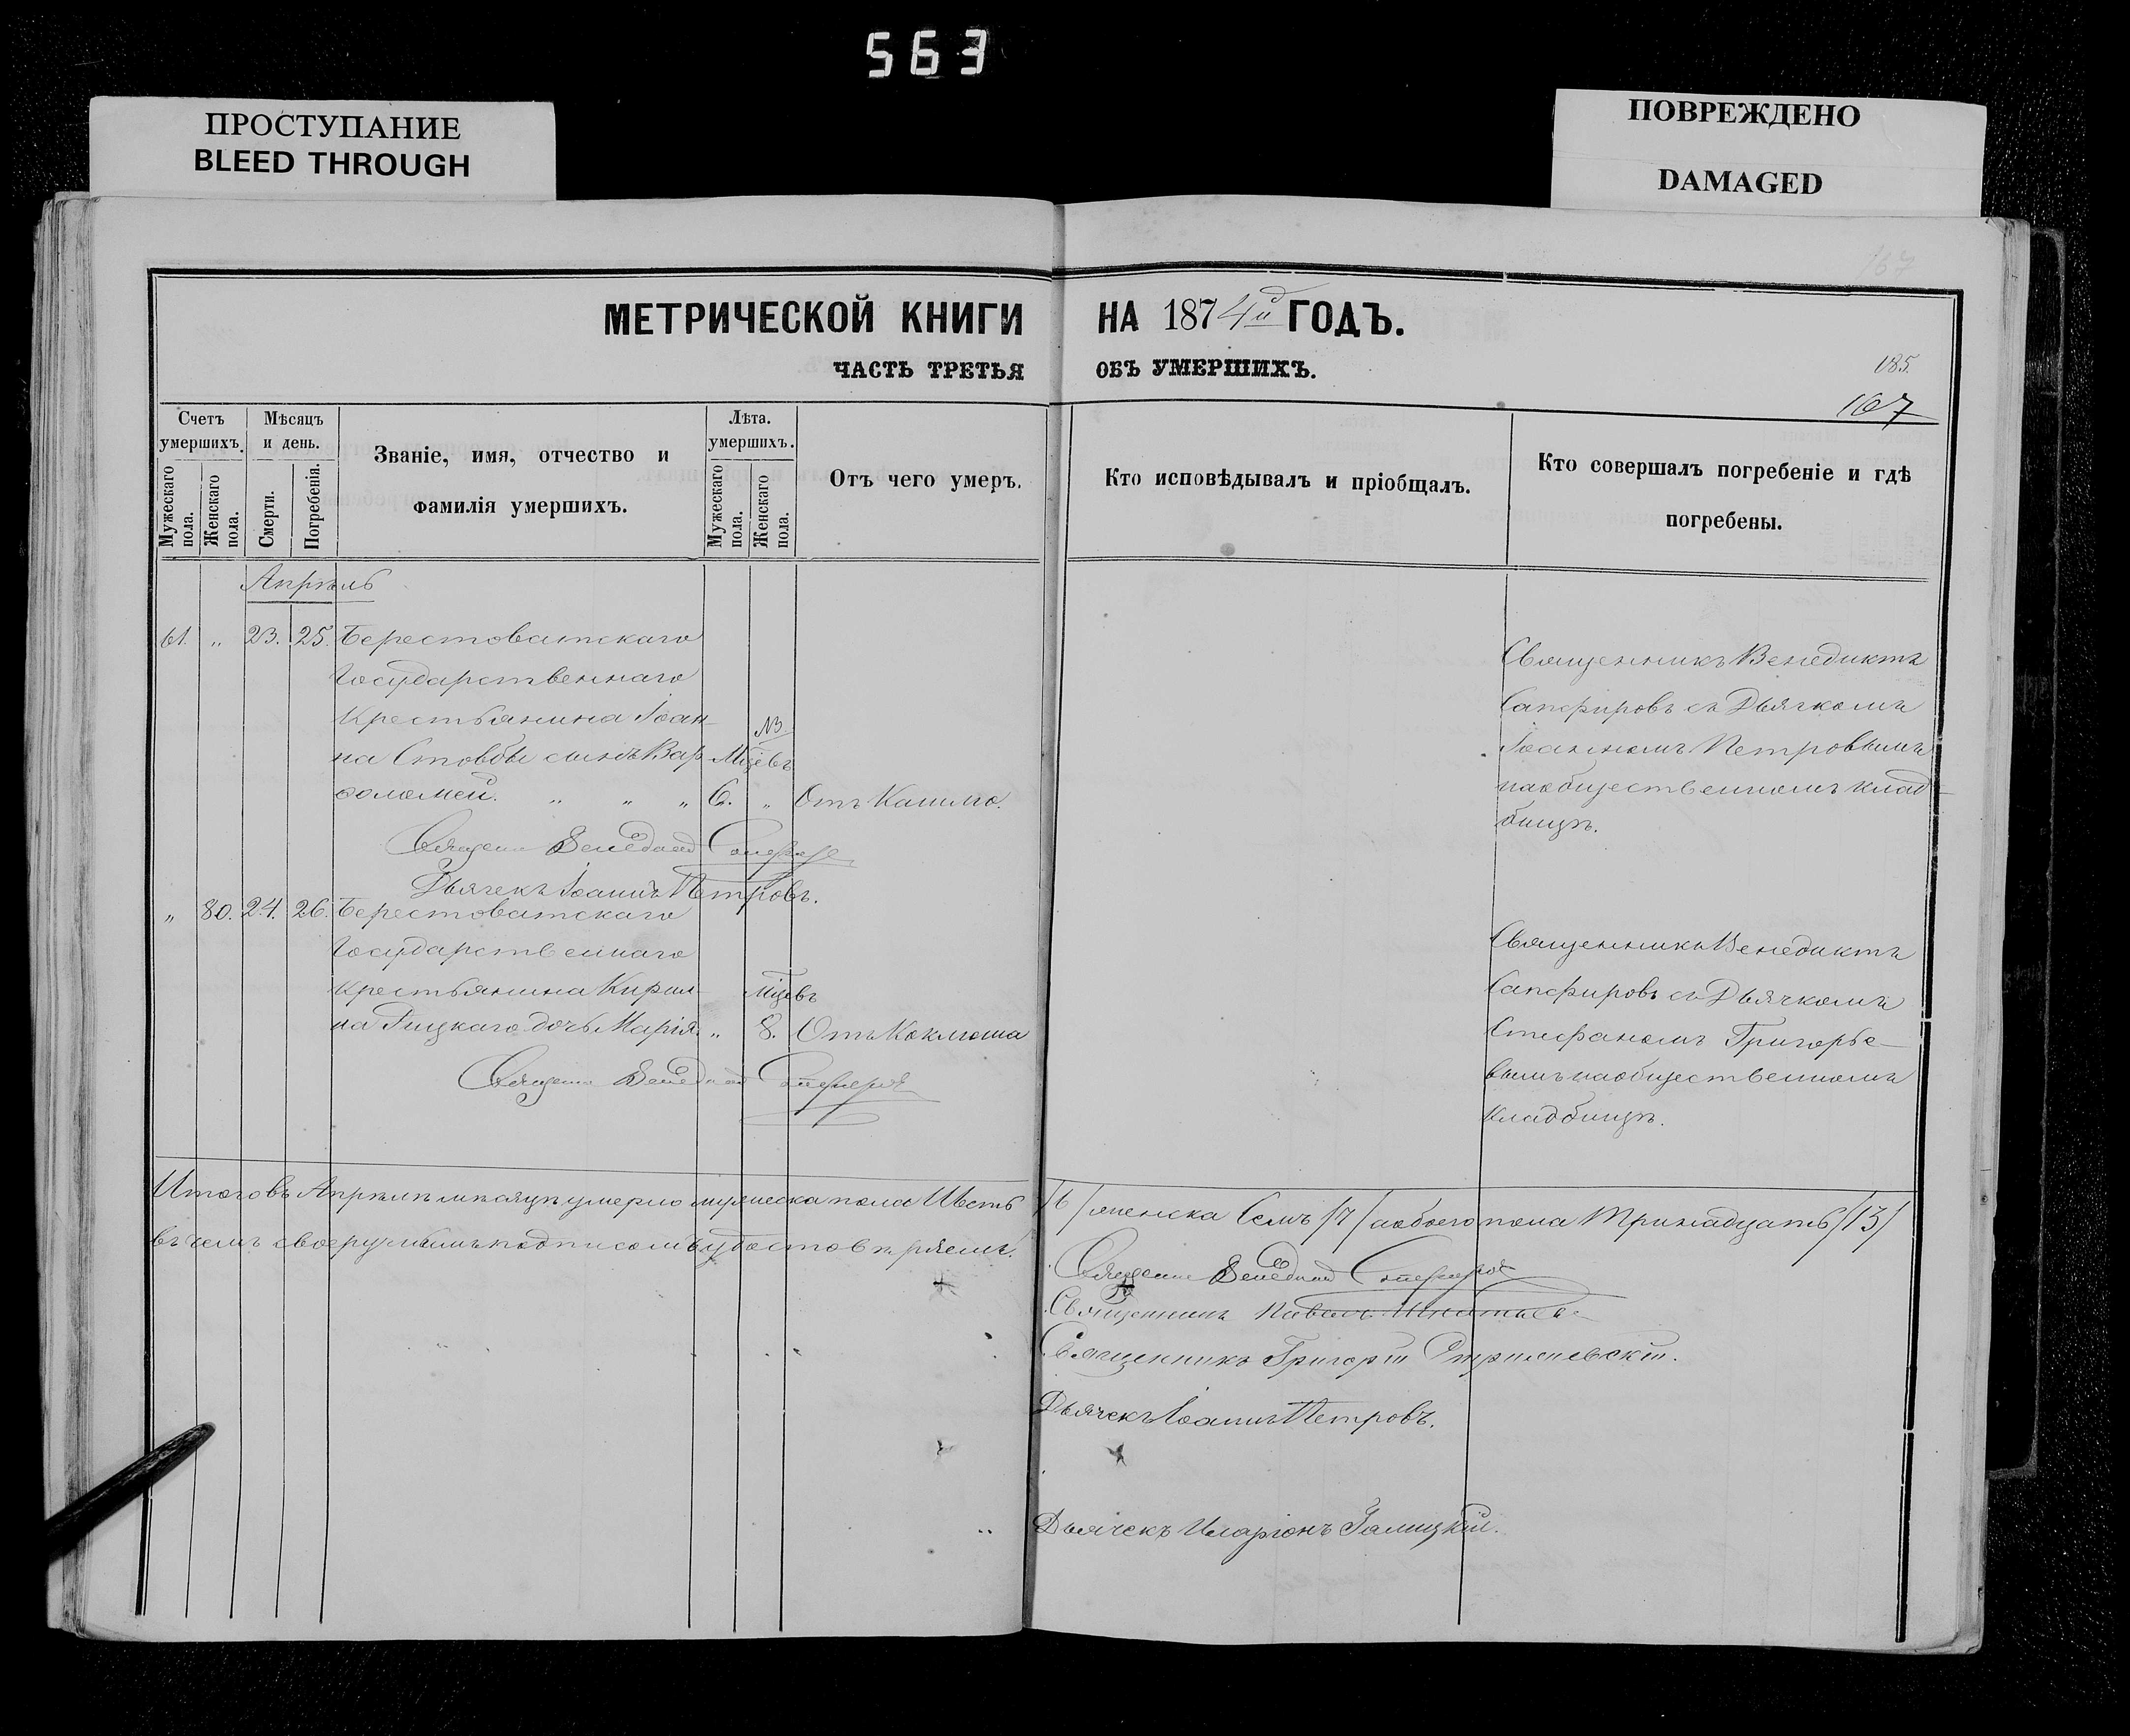 563
ПРОСТУПАНИЕ
BLEED THROUGH
ПОВРЕЖДЕНО
DAMAGED
167
МЕТРИЧЕСКОЙ КНИГИ НА 1874й ГОДЪ.
ЧАСТЬ ТРЕТЬЯ ОБЪ УМЕРШИХЪ.
185.
167
Счетъ умершихъ.
Мужескаго пола.
Женскаго пола.
Мѣсяцъ и день.
Смерти.
Погребенія.
Званіе, имя, отчество и
фамилія умершихъ.
Лѣта. умершихъ.
Мужескаго пола.
Женскаго пола.
Отъ чего умеръ.
Кто исповѣдывалъ и пріобщалъ.
Кто совершалъ погребеніе и гдѣ
погребены.
Апрѣль
61. „ 23. 25. Берестоватскаго
Государственнаго
Крестьянина Іоан-
на Стовбы сынъ Вар-
ѳоломей. „ „ „
Мцевъ
6. „ Отъ Кашлю.
Священникъ Венедиктъ
Сапфировъ съ Дьячкомъ
Іоанномъ Петровымъ
на общественномъ клад-
бищѣ.
Священ Венедикт Сапфиров
Дьячекъ Іоаннъ Петровъ.
„ 80. 24. 26. Берестоватскаго
Государственнаго
крестьянина Кирил-
ла Гицкаго дочь Марія.
Мцевъ
„ 8. Отъ Коклюша
Священникъ Венедиктъ
Сапфировъ съ Дьячкомъ
Стефаномъ Григорье-
вымъ на общественномъ
кладбищѣ.
Священ Венедикт Сапфиров
Итого въ Апрѣлѣ мѣсяцѣ умерло мужеска пола Шесть /6/ женска Семъ /7/ а обоего пола Тринадцать /13/
въ чемъ своеручнымъ подписомъ удостовѣряемъ.
Священ Венедикт Сапфиров
Священникъ Павелъ
Священникъ Григорій
Дьячекъ Іоаннъ Петровъ.
Дьячекъ Иларіонъ Галицкій.